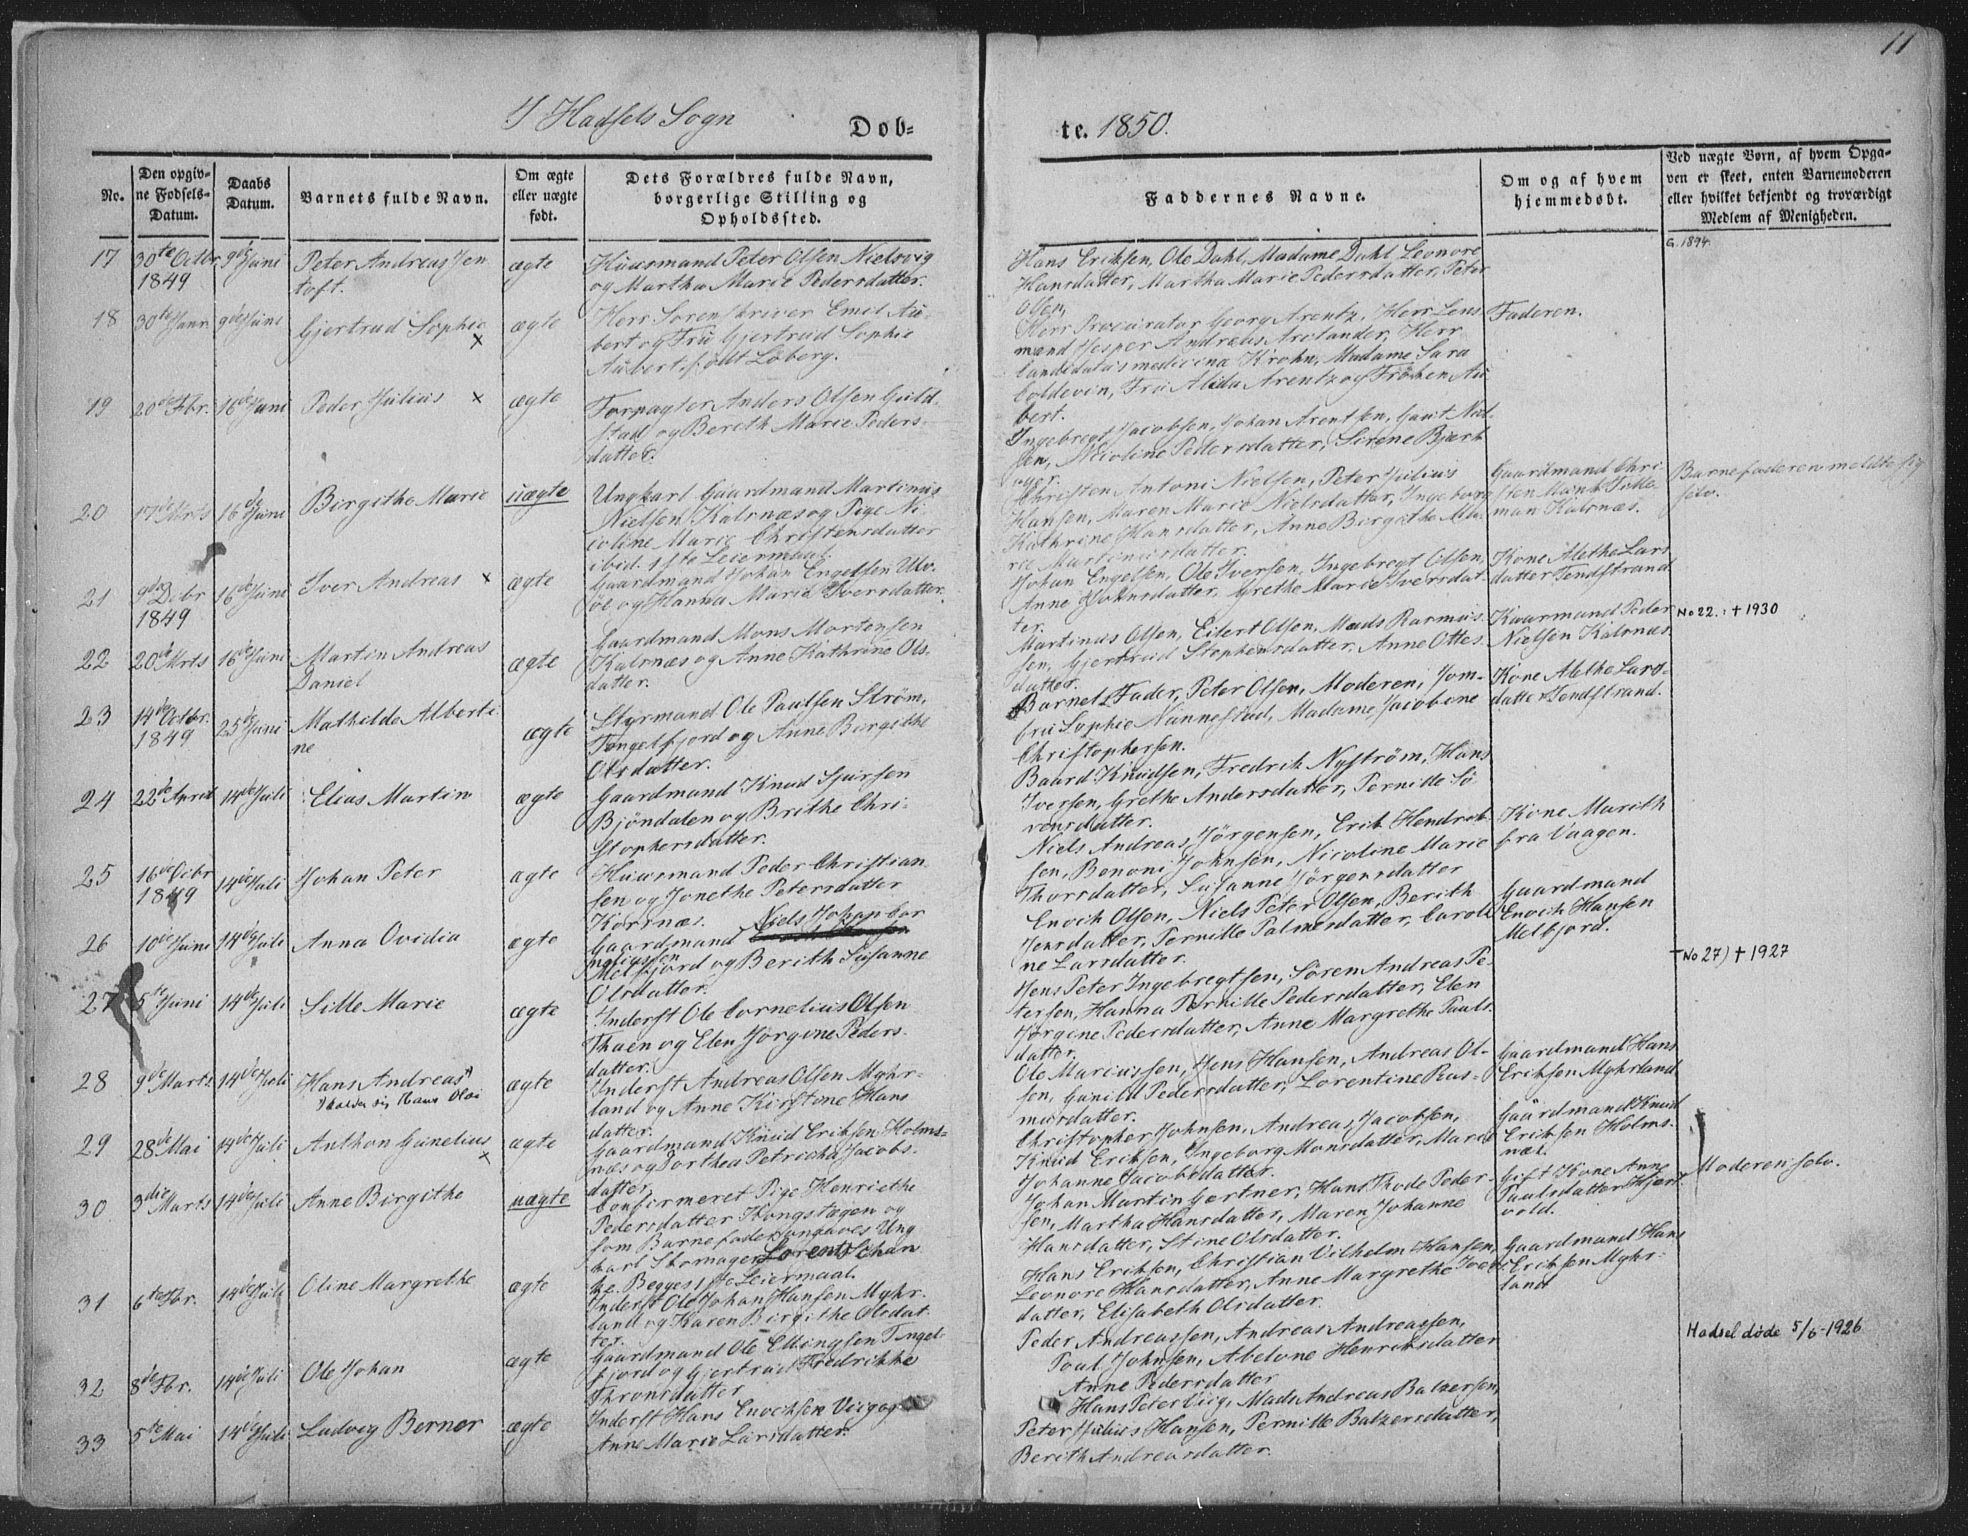 11
I Hadsels Sogn Dob= te. 1850.
No.
Den opgiv-
ne Fødsels-
Datum.
Daabs
Datum.
Barnets fulde Navn.
Om ægte
eller uægte
født.
Dets Forældres fulde Navn,
borgerlige Stilling og
Opholdssted.
Faddernes Navne.
Om og af hvem
hjemmedøbt.
Ved uægte Børn, af hvem Opga-
ven er skeet, enten Barnemoderen
eller hvilket bekjendt og troværdigt
Medlem af Menigheden.
G. 1894.
17
30te Octbr
1849
9de Juni
Peter Andreas Jen
toft.
ægte
Huusmand Peter Olsen Nielsvig
og Martha Marie Pedersdatter.
Hans Eriksen, Ole Dahl, Madame Dahl, Leonore
Hansdatter, Martha Marie Pedersdatter, Peter
Olsen,
18
30te Janr
9de Juni
Gjertrud Sophie
x
ægte
Herr Sorenskriver Emil Au-
bert og Frü Gjertrud Sophie
Aubert, født Löberg.
Herr Procurator Georg Arentz, Herr Lens
mand Jesper Andreas Arctander, Herr
Candidatus medicina Krohn, Madame Sara
Coldevin, Frü Alida Arentz og Fröken Au
bert.
Faderen.
19
20de Fbr.
16de Juni
Peder Julius x
ægte
Forpagter Anders Olsen Guld-
stad og Berith Marie Peders-
datter.
Ingebregt Jacobsen, Johan Arentsen, Gaut Niel-
sen, Nicoline Pedersdatter, Sirene Bjerk
20
17de Mrts
16de Juni
Birgithe Marie
uægte
Ungkarl Gaardmand Martinus
Nielsen Kalsnæs og Pige Ni-
coline Marie Christensdatter
ibid. 1ste Leiermaal.
Christen Antoni Nielsen, Peter Julius
Hansen, Maren Marie Nielsdatter, Ingeborg
Kathrine Hansdatter, Anne Birgithe Ma-
rie Martinusdatter.
Gaardmand Chri-
sten Tille-
man Kalsnæs.
Barnefaderen meldte sig
selv.
21
9de Debr
1849
16de Juni
Iver Andreas x
ægte
Gaardmand Johan Engelsen Ulv-
öe og Hanna Marie Iversdatter.
Johan Engelsen, Ole Iversen, Ingebregt Olsen,
Anne Johnsdatter, Grethe Marie Iversdat-
ter.
Kone Alethe Lars
datter Sendstrand
22
20de Mrts
16de Juni
Martin Andreas
Daniel
ægte
Gaardmand Mons Mortensen
Kalsnæs og Anne Kathrine Ols
datter.
Martinus Olsen, Eilert Olsen, Mads Rasmus-
sen, Gjertrud Stephensdatter, Anne Ottes
datter.
Huusmand Peder
Nielsen Kalsnæs.
No 22.: † 1930
23
14de Octbr.
1849
25de Juni
Mathilde Alberti
ne
ægte
Styrmand Ole Paulsen Ström,
Tengelfjord og Anne Birgithe
Olsdatter.
Barnets Fader, Peter Olsen, Moderen, Jom-
fru Sophie Nannestad, Madame Jacobine
Christophersen.
Kone Alethe Lars-
datter Sendstrand.
24
22de April
14de Juli
Elias Martin
ægte
Gaardmand Knud Sjursen
Bjöndalen og Brithe Chri-
stophersdatter.
Baard Knudsen, Fredrik Nyström, Hans
Iversen, Grethe Andersdatter, Pernille Sö-
rensdatter.
25
16de Octbr
1849
14de Juli
Johan Peter
ægte
Huusmand Peder Christian
sen og Jonethe Petersdatter
Korsnæs.
Niels Andreas Jörgensen, Erik Hendrik-
sen, Benoni Johnsen, Nicoline Marie
Thorsdatter, Susanne Jörgensdatter
Kone Marith
fra Vaagen.
26
10de Juni
14de Juli
Anna Ovidia
ægte
Gaardmand Niels Johan Cor
neliussen
Melfjord og Berith Susanne
Olsdatter.
Enoch Olsen, Niels Peter Olsen, Berith
Jensdatter, Pernille Palmesdatter, Caroli
ne Larsdatter.
Gaardmand
Enoch Hansen
Melfjord.
27
5te Juni
14de Juli
Sille Marie
ægte
Inderst Ole Cornelius Olsen
Thuen og Elen Jörgine Peders-
datter.
Jens Peter Ingebregtsen, Sören Andreas Pe-
tersen, Hanna Pernille Pedersdatter, Elen
Jörgine Pedersdatter, Anne Margrethe Pauls
datter.
No 27) † 1927
28
9de Marts
14de Juli
Hans Andreas
kalder sig Hans Olai
ægte
Inderst Andreas Olsen Myhr-
land og Anne Kirstine Hans
datter.
Ole Mariussen, Jens Hansen, Andreas Ol-
sen, Gunild Pedersdatter, Lorentine Ras-
musdatter.
Gaardmand Hans
Eriksen Myhrland
29
28de Mai
14de Juli
Anthon Gunelius
x
ægte
Gaardmand Knud Eriksen Holms-
næs og Dorthea Petricka Jacobs-
datter.
Christopher Johnsen, Andreas Jacobsen,
Knud Eriksen, Ingeborg Monsdatter, Maria
Johanne Jacobsdatter.
Gaardmand Knud
Eriksen Holms-
næs.
30
3die Marts
14de Juli
Anne Birgithe
uægte
Confirmeret Pige Henriethe
Pedersdatter Kongstagen og
som Barnefader angaves Ung
karl Stormagen Lorents Johan
Begges 1ste Leiermaal.
Johan Martin Gertner, Hans Thode Peder-
sen, Martha Hansdatter, Maren Johanne
Hansdatter, Stine Olsdatter.
Gift Kone Anne
Paulsdatter Hjert-
vold.
Moderen selv.
31
6te Fbr.
14de Juli
Oline Margrethe
ægte
Inderst Ole Johan Hansen Myhr-
land og Karen Birgithe Olsdat-
ter.
Hans Eriksen, Christian Vilhelm Hansen,
Leonore Hansdatter, Anne Margrethe Iversdatter, Elisabeth Olsdatter.
Gaardmand Hans
Eriksen Myhr-
land
32
8de Fbr.
14de Juli
Ole Johan
ægte
Gaardmand Ole Ellingsen Tengel-
fjord og Gjertrud Fredrikke
Thronsdatter
Peder Andreassen, Andreas Andreassen,
Poul Johnsen, Abelone Henriksdatter
Anne Pedersdatter
Hadsel døde 5/6-1926
33
5te Mai
14de Juli
Ludvig Berner
ægte
Inderst Hans Enochsen Viig og
Anne Marie Larsdatter.
Hans Peter Viig, Mads Andreas Balzersen,
Peter Julius Hansen, Pernille Balzersdatter,
Berith Andreasdatter.